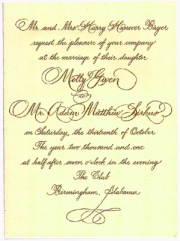 Mr. and Mrs. Harry Hanover Bryer
request the pleasure of your company
at the marriage of their daughter
Molly Gwen
to
Mr. Adam Matthew
on Saturday, the thirteenth of October
The year two thousand and one
at half after seven o'clock in the evening
The Club
Birmingham, Alabama